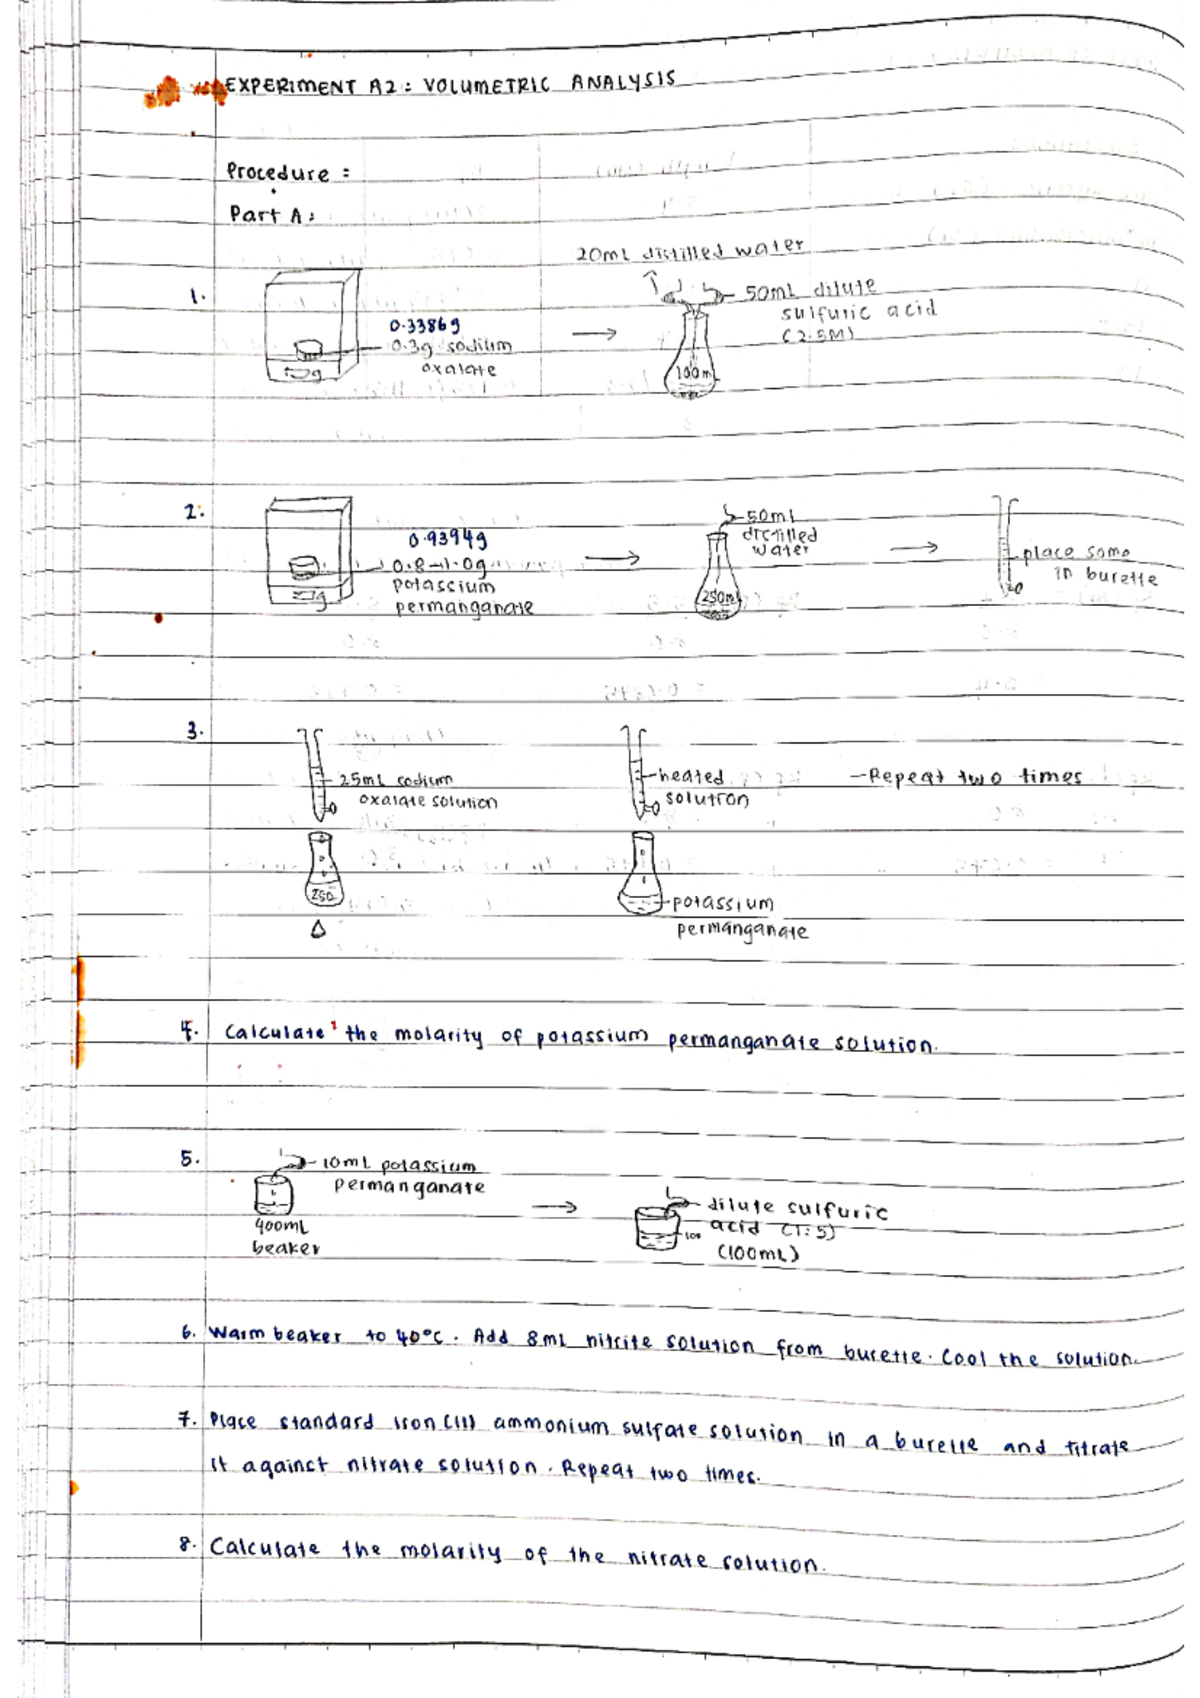 EXPERIMENT A2: VOLUMETRIC ANALYSIS
Procedure :
Part A:
1.
0.3386g
0.3g sodium
oxalate
g
20mL distilled water
50mL dilute
sulfuric acid
(2.5M)
100m
2.
0.9394g
0.8-1.0g
potassium
permanganate
g
50ml
distilled
water
250m
place some
in burette
3.
25mL sodium
oxalate solution
250
heated
solution
potassium
permanganate
-Repeat two times
4. Calculate the molarity of potassium permanganate solution.
5.
10mL potassium
permanganate
400mL
beaker
dilute sulfuric
acid (1:5)
(100mL)
100
6. Warm beaker to 40°C. Add 8mL nitrite solution from burette. Cool the solution.
7. Place standard iron(II) ammonium sulfate solution in a burette and titrate
it against nitrate solution. Repeat two times.
8. Calculate the molarity of the nitrate solution.